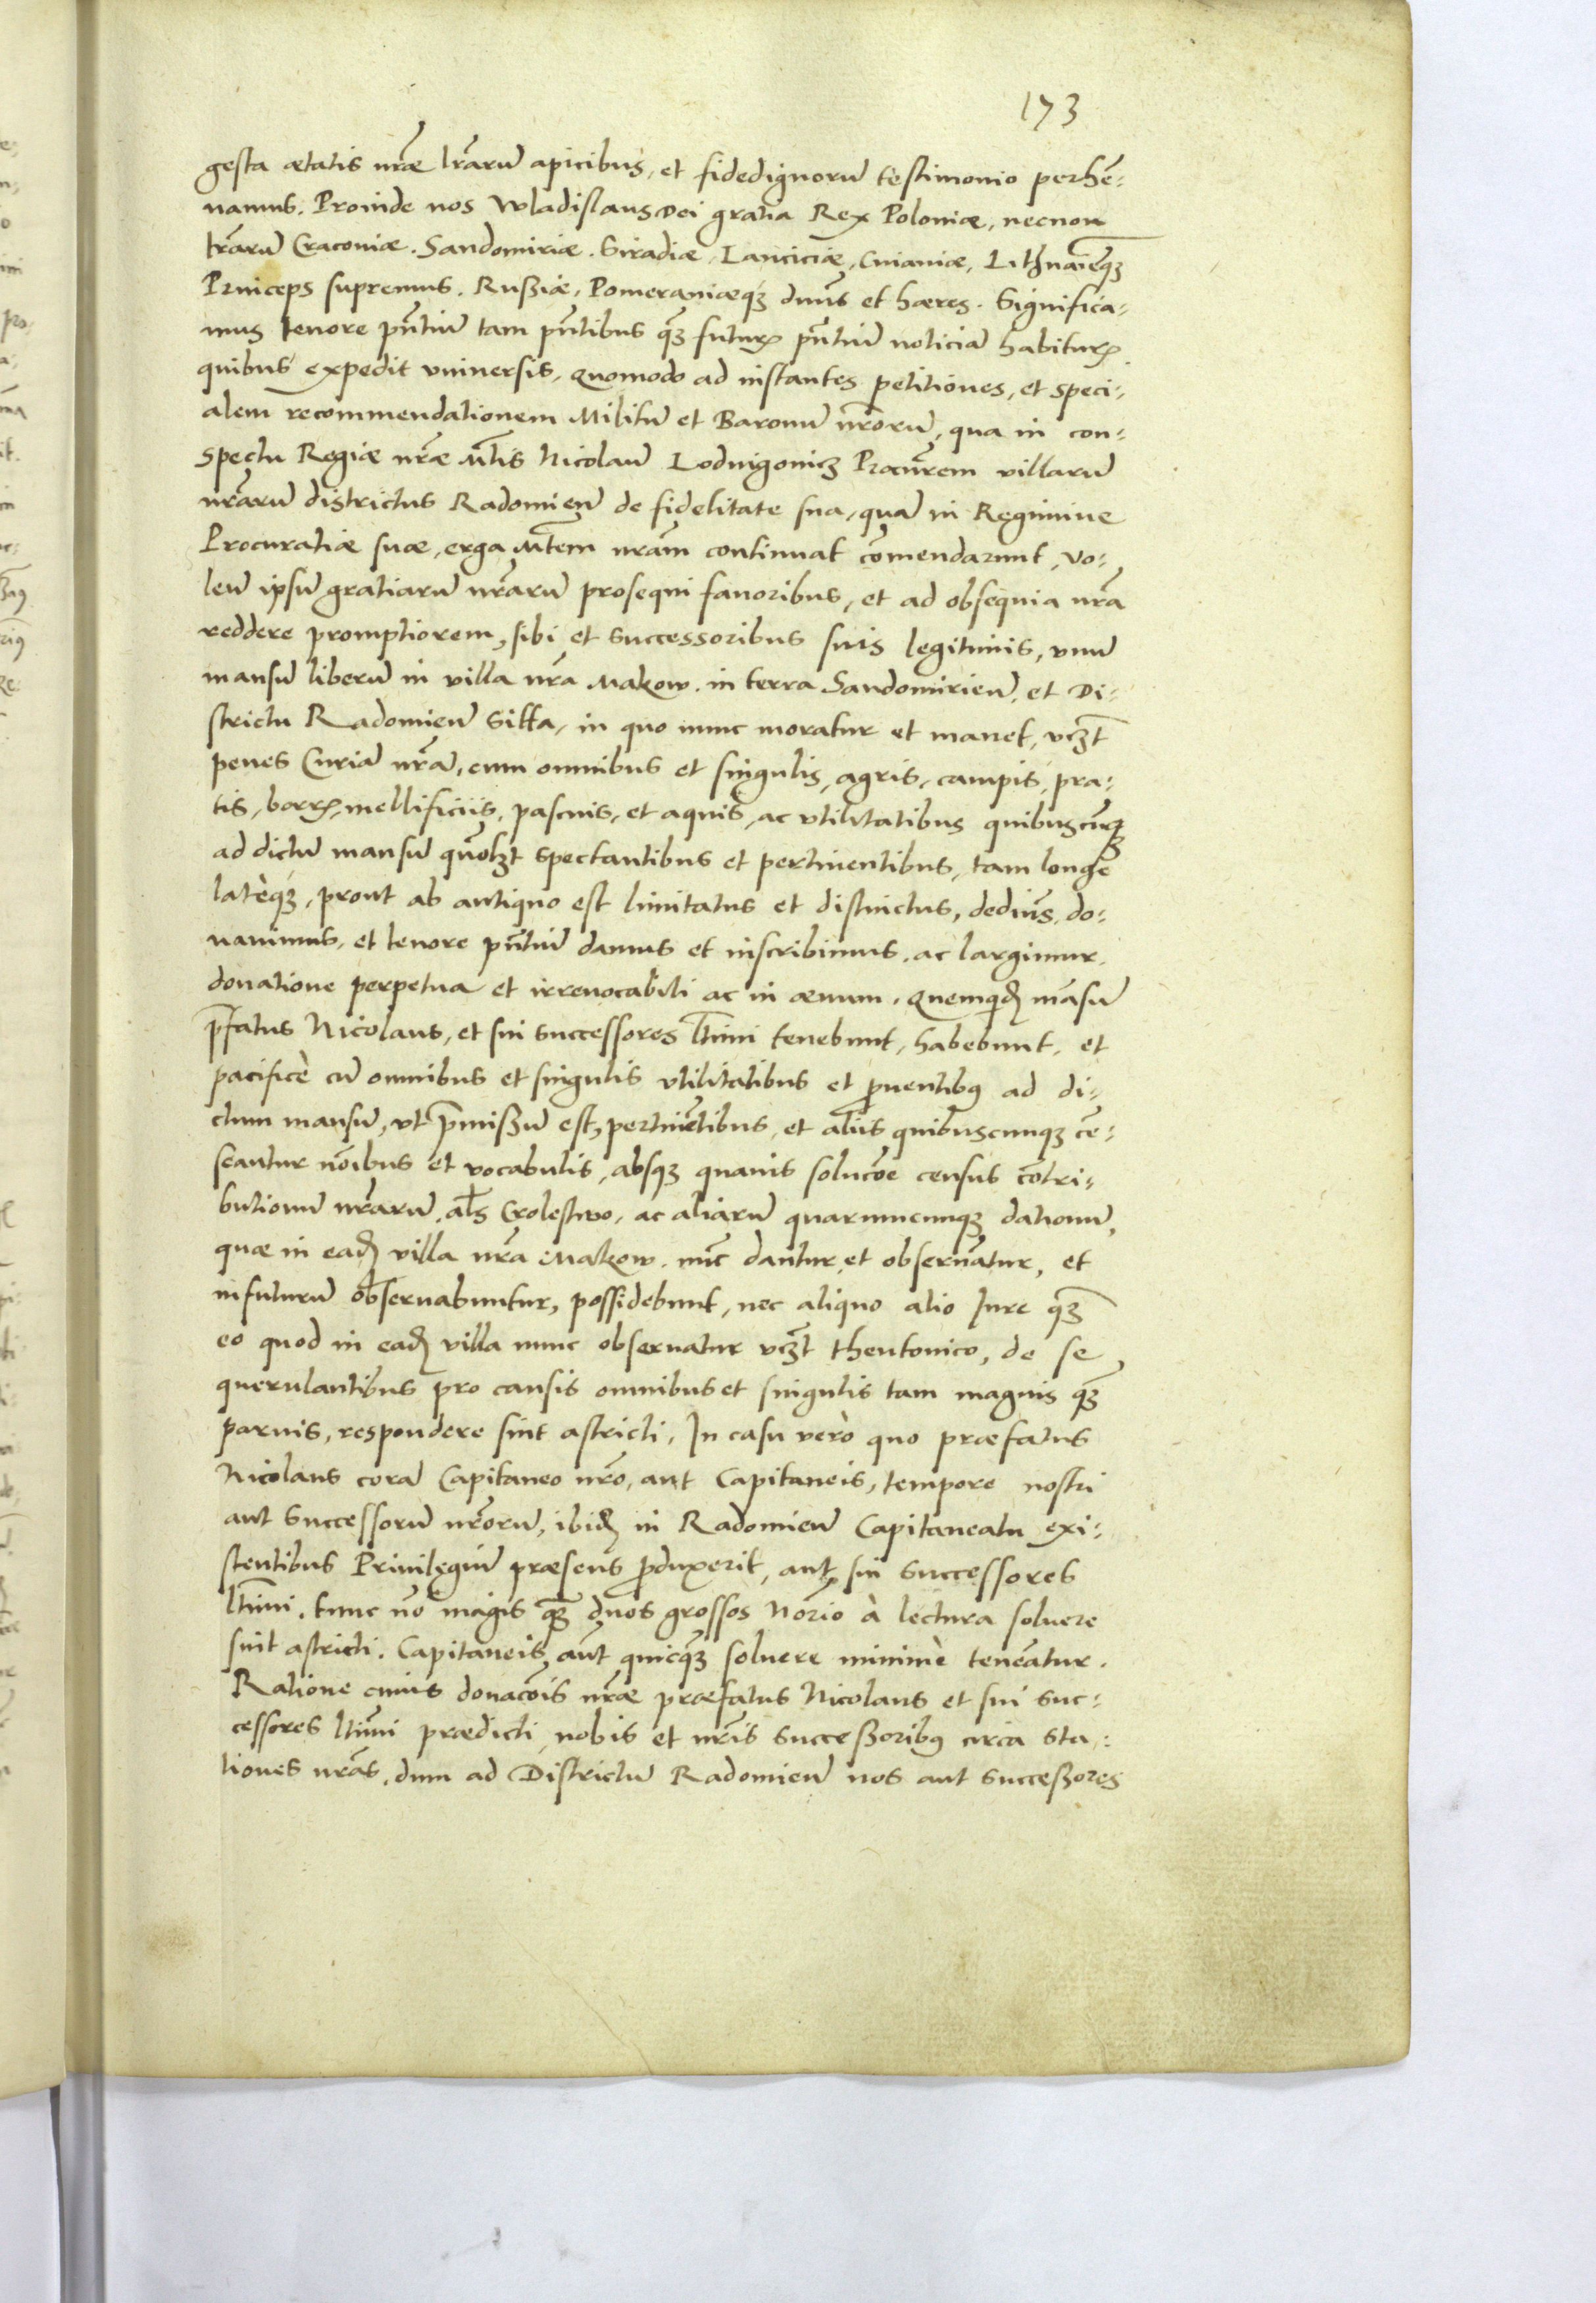 173
gesta ætatis nr̃æ lr̃arũ apicibus, et fidedignorũ testimonio perhẽ:
namus. Proinde nos Wladislaus Dei gratia Rex Poloniæ, necnon
tr̃arũ Cracoviæ. Sandomiriæ. Siradiæ, Lanciciæ, Cuiaviæ, Lithuaniæq₃
Princeps supremus. Rußiæ, Pomeraniæq₃ dñus et hæres. Significa:
mus tenore pñtiũ tam pñtibus q̃₃ futurꝝ pñtiũ noticiã habiturꝝ
quibus expedit vniuersis, quomodo ad instantes petitiones, et speci:
alem recommendationem Militũ et Baronũ nr̃orũ, qua in con:
spectu Regiæ nr̃æ Mt̃is Nicolaũ Loduigouicz Procur̃em villarũ
nr̃arũ districtus Radomieñ de fidelitate sua, quã in Regimine
Procuratiæ suæ, erga Mt̃em nr̃am continuat com̃endarunt, vo:
leñ ipsũ gratiarũ nr̃arũ prosequi fauoribus, et ad obsequia nr̃a
reddere promptiorem, sibi et successoribus suis legitimis, vnũ
mansũ liberũ in villa nr̃a Makow. in terra Sandomirieñ. et Di:
strictu Radomieñ sitta, in quo nunc moratur et manet, vcz̃t
penes Curiã nr̃ã, cum omnibus et singulis, agris, campis, pra:
tis, borrꝭ, mellificiis, pascuis, et aquis, ac vtilitatibus quibuscũq₃
ad dictũ mansũ quõlz̃t spectantibus et pertinentibus, tam longe
latèq₃, prout ab antiquo est limitatus et distinctus, dedim̃s, do:
nauimus, et tenore pñtiũ damus et inscribimus, ac largimur,
donatione perpetua et irreuocabili ac in æuum. Quemquidẽ mãsũ
p̃fatus Nicolaus, et sui successores lt̃imi tenebunt, habebunt, et
pacificè cũ omnibus et singulis vtilitatibus et ꝓuentibꝰ ad di:
ctum mansũ, vt p̃mißũ est, pertinẽtibus, et aliis quibuscunq₃ cẽ:
seantur nõibus et vocabulis, absq₃ quauis solucõe census cõtri:
butionũ nr̃arũ, al̃s Crolestwo, ac aliarũ quarumcunq₃ dationũ,
quæ in eadẽ villa nr̃a Makow. nũc dantur et obseruãtur, et
infuturũ obseruabuntur, possidebunt, nec aliquo alio Iure q̃₃
eo quod in eadẽ villa nunc obseruatur vcz̃t theutonico, de se
querulantibus pro causis omnibus et singulis tam magnis q̃₃
paruis, respondere sint astricti. In casu verò quo præfatus
Nicolaus corã Capitaneo nr̃o, aut Capitaneis, tempore nostri
aut successorũ nr̃orũ, ibidẽ in Radomieñ Capitaneatu exi:
stentibus Priuilegiũ præsens ꝓduxerit, aut sui successores
lt̃imi, tunc nõ magis q̃₃ duos grossos Nor̃io à lectura soluere
sint astricti. Capitaneis aũt quicq̃₃ soluere minimè teneãtur.
Ratione cuius donacõis nr̃æ præfatus Nicolaus et sui suc:
cessores lt̃imi prædicti, nobis et nr̃is succeßoribꝰ circa sta:
tiones nr̃as, dum ad Districtũ Radomieñ nos aut succeßores